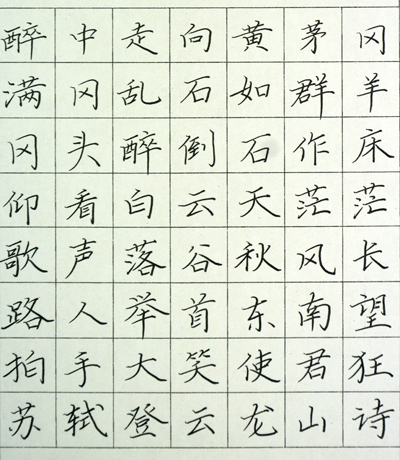 醉中走向黄茅冈
满冈乱石如群羊
冈头醉倒石作床
仰看白云天茫茫
歌声落谷秋风长
路人举首东南望
拍手大笑使君狂
苏轼登云龙山诗